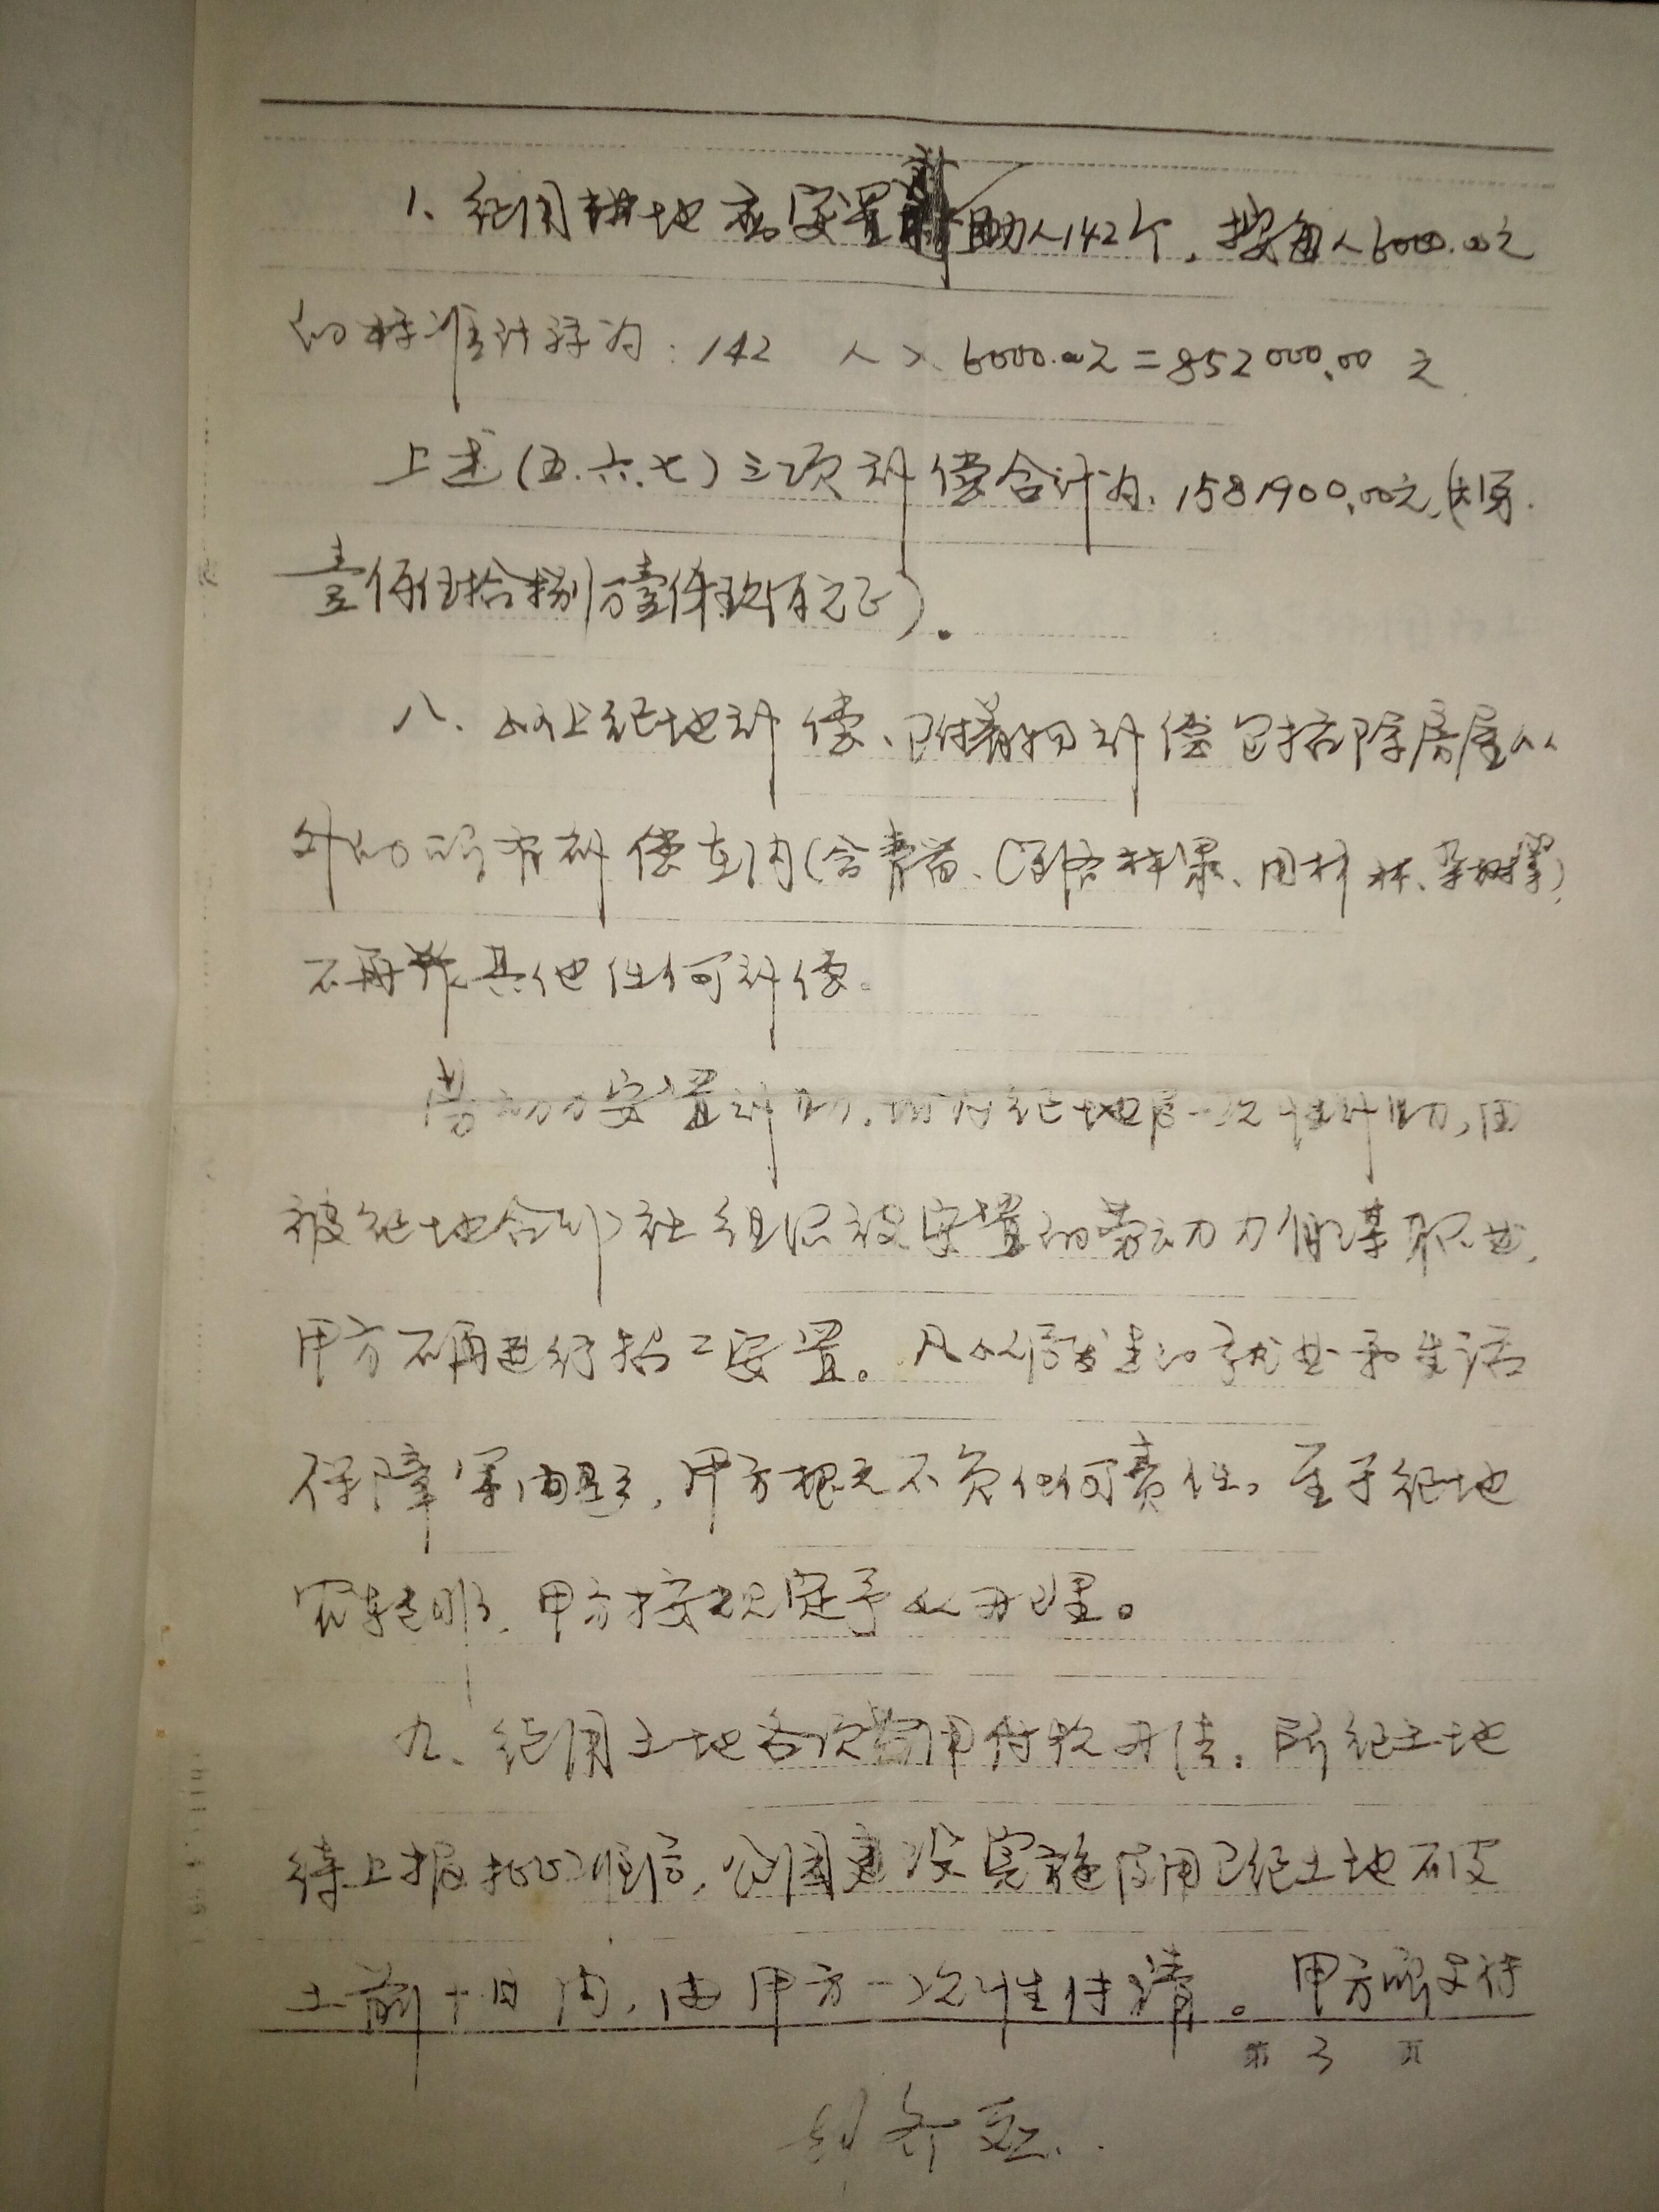 1、征用耕地应安置补助人142个，按每人6000.00元
的标准计算为：142 人×6000.00元=852000.00 元
上述(五、六、七)三项补偿合计为：1581900.00元，(大写：
壹佰伍拾捌万壹仟玖佰元正)。
八、以上征地补偿、附着物补偿包括除房屋以
外的所有补偿在内(含青苗、经济林果、用材林、杂树等)
不再作其他任何补偿。
劳动力安置补助，由征地后一次性补助，由
被征地合作社组织被安置的劳动力自谋职业，
甲方不再进行招工安置。凡以后发生的就业和生活
保障等问题，甲方概不负任何责任。至于征地
农转非，甲方按规定予以办理。
九、征用土地各项费用付款办法：所征土地
待上报批准后，公园建设实施使用已征土地不皮
土前十日内，由甲方一次性付清。甲方
第 3 页